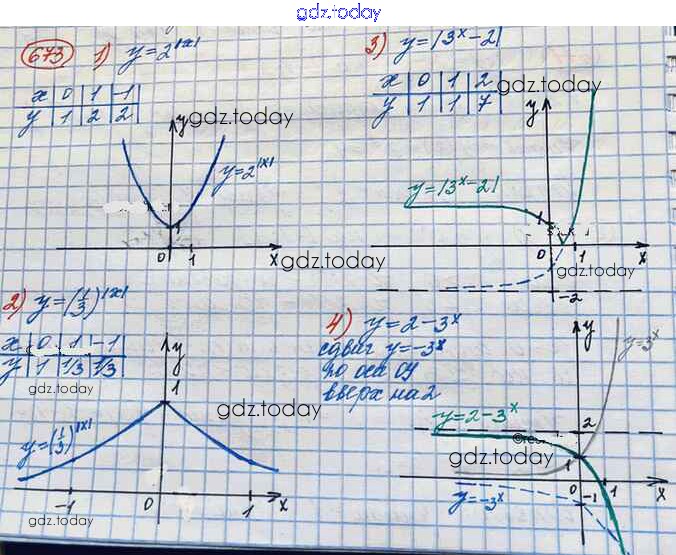 gdz.today
673 1) y=2^|x|
x 0 1 -1
y 1 2 2
gdz.today
y
y=2^|x|
1
0 1 x
gdz.today
3) y=|3^x-2|
x 0 1 2
y 1 1 7
gdz.today
y
y=|3^x-2|
1
0 1 x
gdz.today
-2
2) y=(1/3)^|x|
x 0 1 -1
y 1 1/3 1/3
gdz.today
y
1
gdz.today
y=(1/3)^|x|
-1 0 1 x
gdz.today
4) y=2-3^x
сдвиг y=-3^x
по оси Oy
вверх на 2
y
y=3^x
2
y=2-3^x
gdz.today
1
0 1 x
-1
y=-3^x